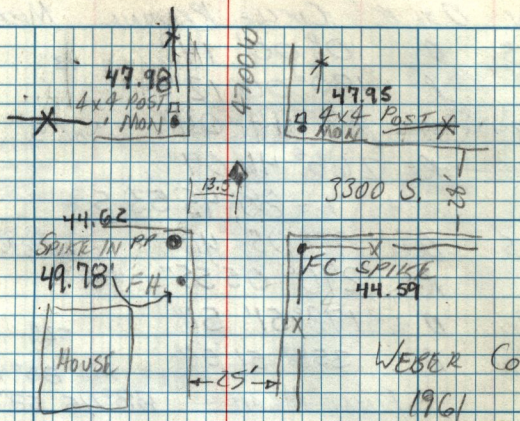 47.98
4x4 POST
MON
4700 W
47.95
4x4 POST
MON
13.5
3300 S.
28'
44.62
SPIKE IN PP
49.78'
FH
FC SPIKE
44.59
HOUSE
25'
WEBER Co
1961